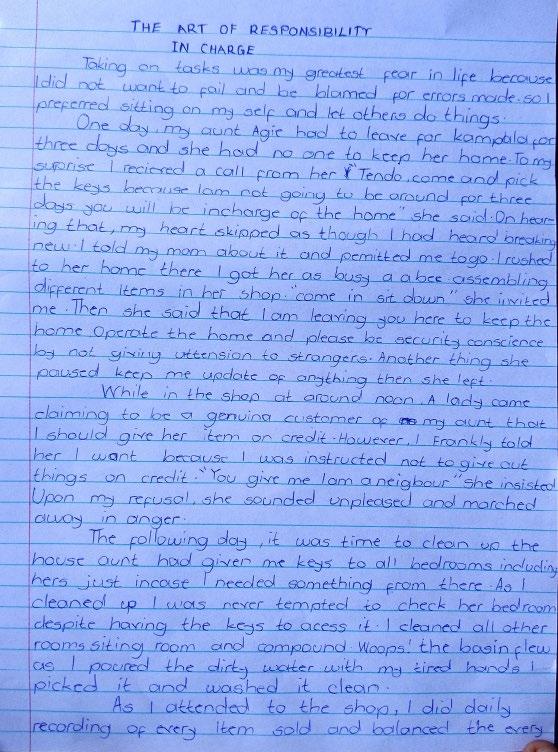 THE ART OF RESPONSIBILITY
IN CHARGE
Taking on tasks was my greatest fear in life because
I did not want to fail and be blamed for errors made. so I
preferred sitting on my self and let others do things.
One day, my aunt Agie had to leave for kampala for
three days and she had no one to keep her home. To my
suprise I recieved a call from her "Tendo, come and pick
the keys because Iam not going to be around for three
days you will be incharge of the home" she said. On hear
ing that, my heart skipped as though I had heard breaking
new. I told my mom about it and permitted me to go. I rushed
to her home there I got her as busy a a bee assembling
different Items in her shop. "come in sit down" she invited
me. Then she said that I am leaving you here to keep the
home. Operate the home and please be security conscience
by not giving attension to strangers. Another thing she
paused keep me update of anything then she left.
While in the shop at around noon. A lady came
claiming to be a genuine customer of my aunt that
I should give her item on credit. However, I Frankly told
her I want because I was instructed not to give out
things on credit. "You give me Iam a neigbour" she insisted
Upon my refusal, she sounded unpleased and marched
away in anger.
The following day, it was time to clean up the
house aunt had given me keys to all bedrooms including
hers just incase I needed something from there. As I
cleaned up I was never tempted to check her bedroom
despite having the keys to acess it. I cleaned all other
rooms siting room and compound. Woops! the basin flew
as I poured the dirty water with my tired hands I
picked it and washed it clean.
As I attended to the shop, I did daily
recording of every item sold and balanced the every